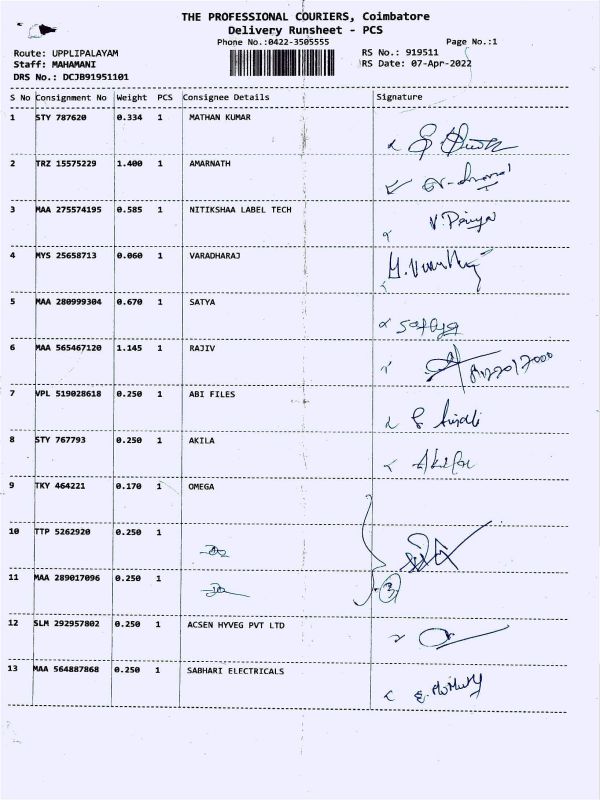 THE PROFESSIONAL COURIERS, Coimbatore
Delivery Runsheet - PCS
Phone No.:0422-3505555 Page No.:1
Route: UPPLIPALAYAM RS No.: 919511
Staff: MAHAMANI RS Date: 07-Apr-2022
DRS No.: DCJB91951101
S No Consignment No Weight PCS Consignee Details Signature
1 STY 787620 0.334 1 MATHAN KUMAR
2 TRZ 15575229 1.400 1 AMARNATH
3 MAA 275574195 0.585 1 NITIKSHAA LABEL TECH V. Priya
4 MYS 25658713 0.060 1 VARADHARAJ
5 MAA 280999304 0.670 1 SATYA Satya
6 MAA 565467120 1.145 1 RAJIV
7 VPL 519028618 0.250 1 ABI FILES
8 STY 767793 0.250 1 AKILA Akila
9 TKY 464221 0.170 1 OMEGA
10 TTP 5262920 0.250 1
11 MAA 289017096 0.250 1 3
12 SLM 292957802 0.250 1 ACSEN HYVEG PVT LTD
13 MAA 564887868 0.250 1 SABHARI ELECTRICALS